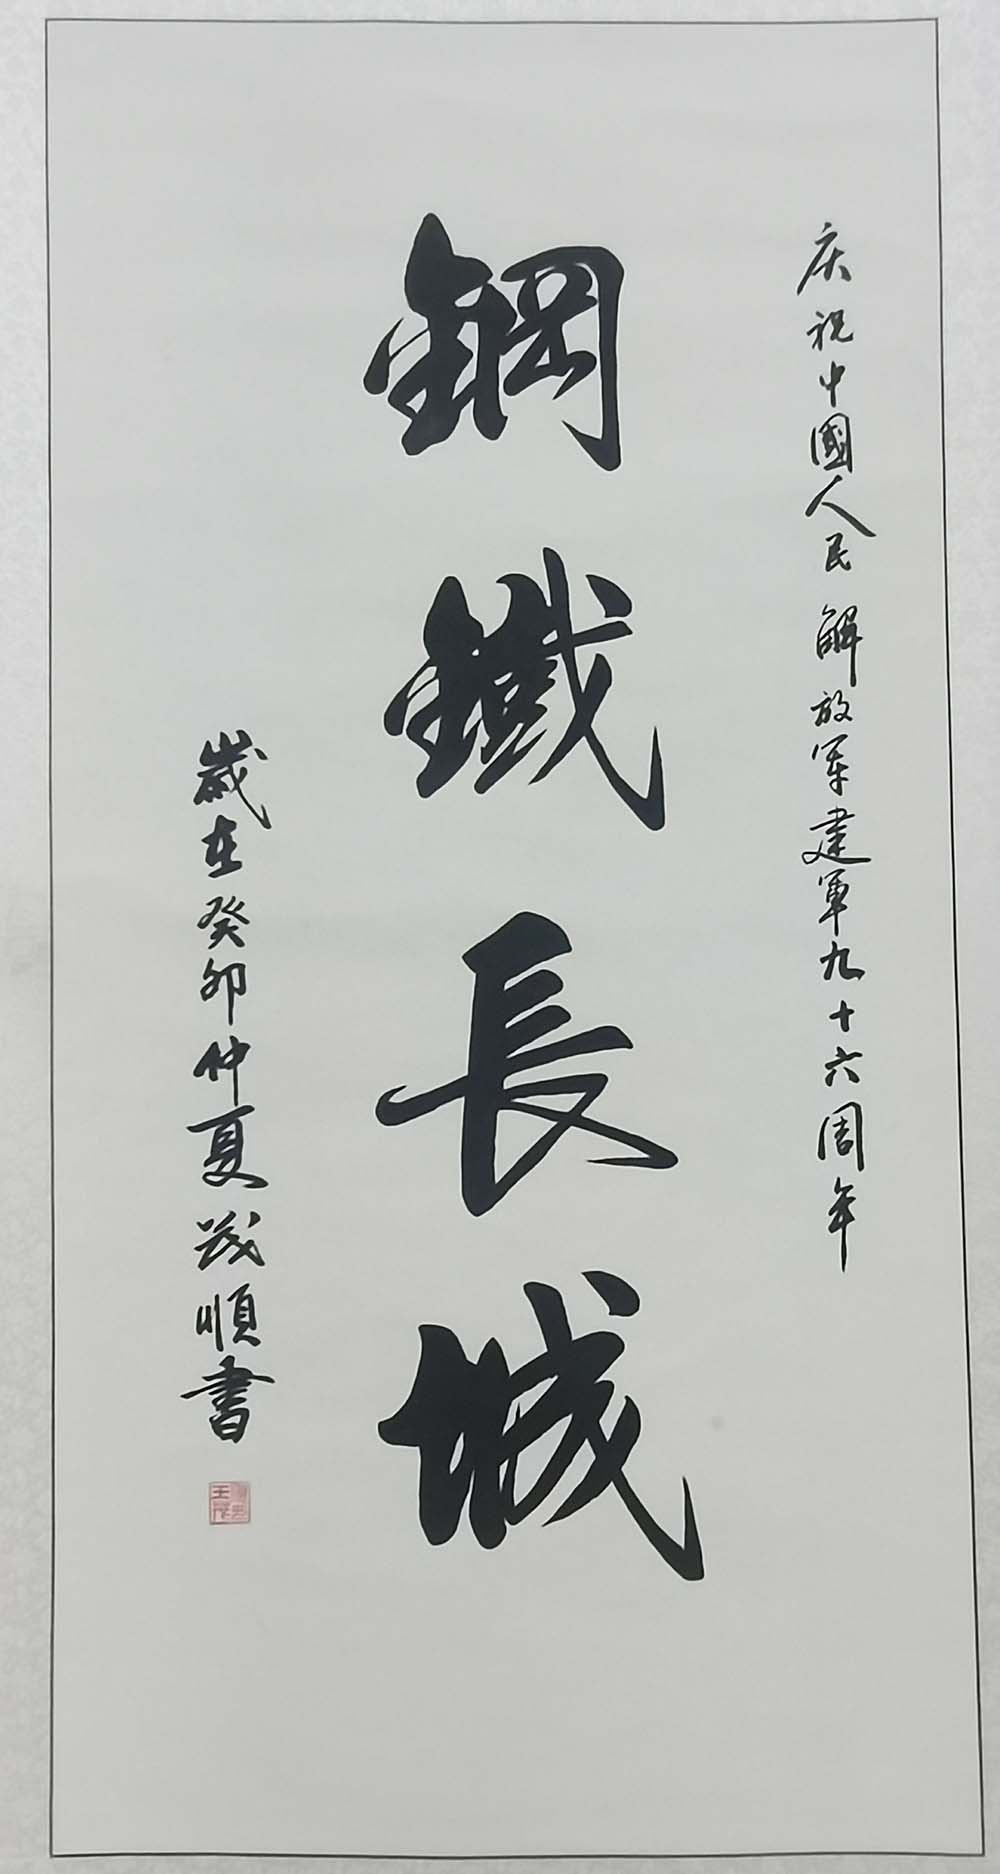 庆祝中國人民解放军建軍九十六周年
鋼鐵長城
歲在癸卯仲夏茂順書